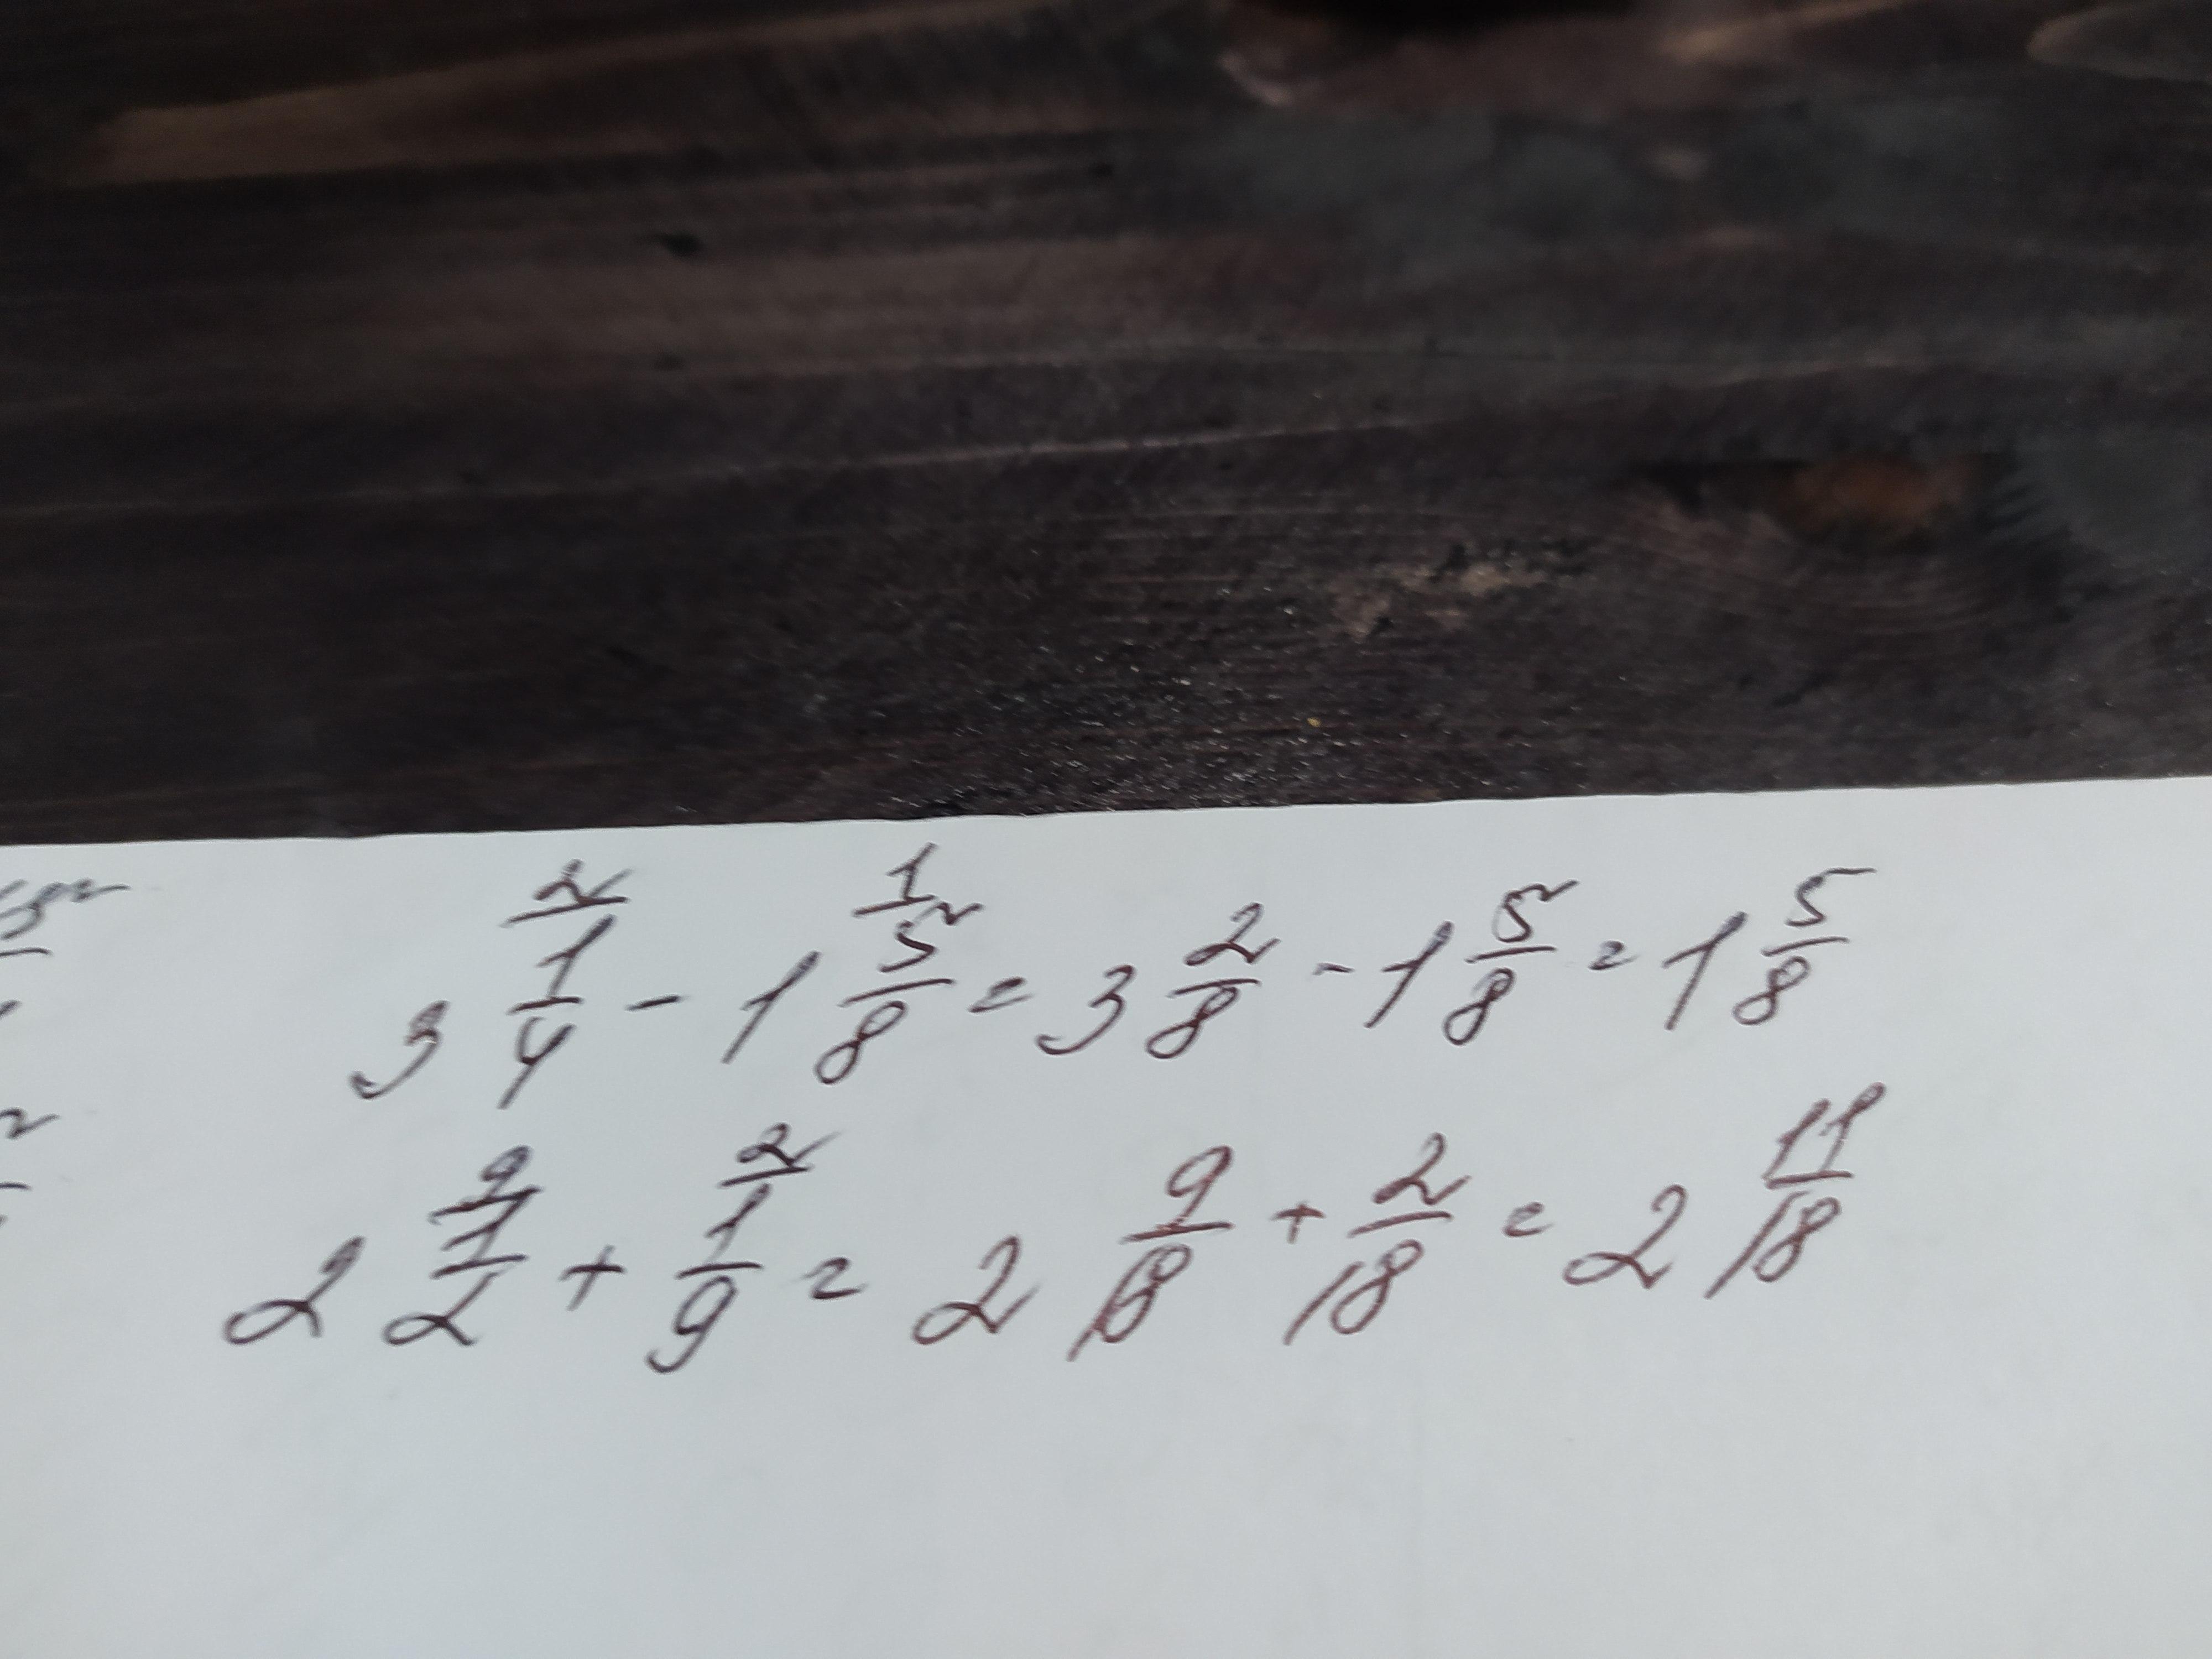 3 1/4 (2) - 1 5/8 (1) = 3 2/8 - 1 5/8 = 1 5/8
2 1/2 (9) + 1/9 (2) = 2 9/18 + 2/18 = 2 11/18